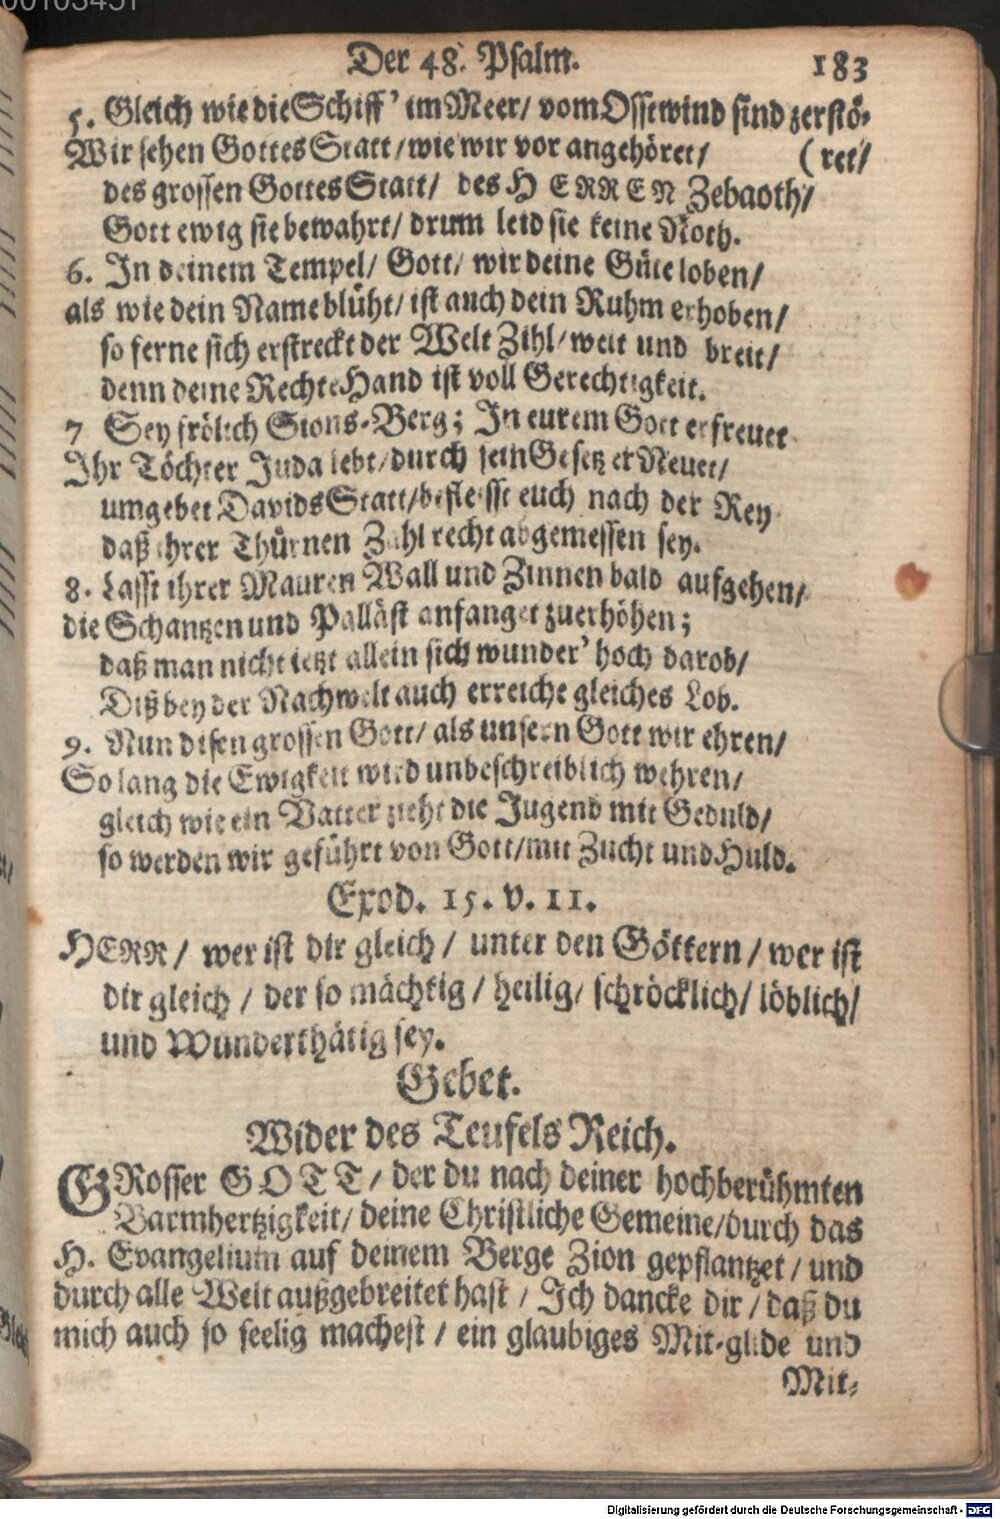 00103451
Der 48. Psalm. 183
5. Gleich wie die Schiff' im Meer/ vom Ostwind sind zerstö-
Wir sehen Gottes Statt/ wie wir vor angehöret/ (ret/
des grossen Gottes Statt/ des HERREN Zebaoth/
Gott ewig sie bewahrt/ drum leid sie keine Noth.
6. In deinem Tempel/ Gott/ wir deine Güte loben/
als wie dein Name blüht/ ist auch dein Ruhm erhoben/
so ferne sich erstreckt der Welt Zihl/ weit und breit/
denn deine Rechte Hand ist voll Gerechtigkeit.
7 Sey frölich Sions-Berg; In eurem Gott erfreuet
Ihr Töchter Juda lebt/ durch sein Gesetz er Neuet/
umgebet Davids Statt/ befleisst euch nach der Rey
daß ihrer Thürnen Zahl recht abgemessen sey.
8. Lasst ihrer Mauren Wall und Zinnen bald aufgehen/
die Schantzen und Palläst anfanget zuerhöhen;
daß man nicht ietzt allein sich wunder' hoch darob/
Diß bey der Nachwelt auch erreiche gleiches Lob.
9. Nun disen grossen Gott/ als unsern Gott wir ehren/
So lang die Ewigkeit wird unbeschreiblich wehren/
gleich wie ein Vatter zieht die Jugend mit Geduld/
so werden wir geführt von Gott/ mit Zucht und Huld.
Exod. 15. v. 11.
HERR/ wer ist dir gleich/ unter den Göttern/ wer ist
dir gleich/ der so mächtig/ heilig/ schröcklich/ löblich/
und Wunderthätig sey.
Gebet.
Wider des Teufels Reich.
GRosser GOTT/ der du nach deiner hochberühmten
Barmhertzigkeit/ deine Christliche Gemeine/ durch das
H. Evangelium auf deinem Berge Zion gepflantzet/ und
durch alle Welt außgebreitet hast/ Ich dancke dir/ daß du
mich auch so seelig machest/ ein glaubiges Mit-glide und
Mit-
Digitalisierung gefördert durch die Deutsche Forschungsgemeinschaft - DFG